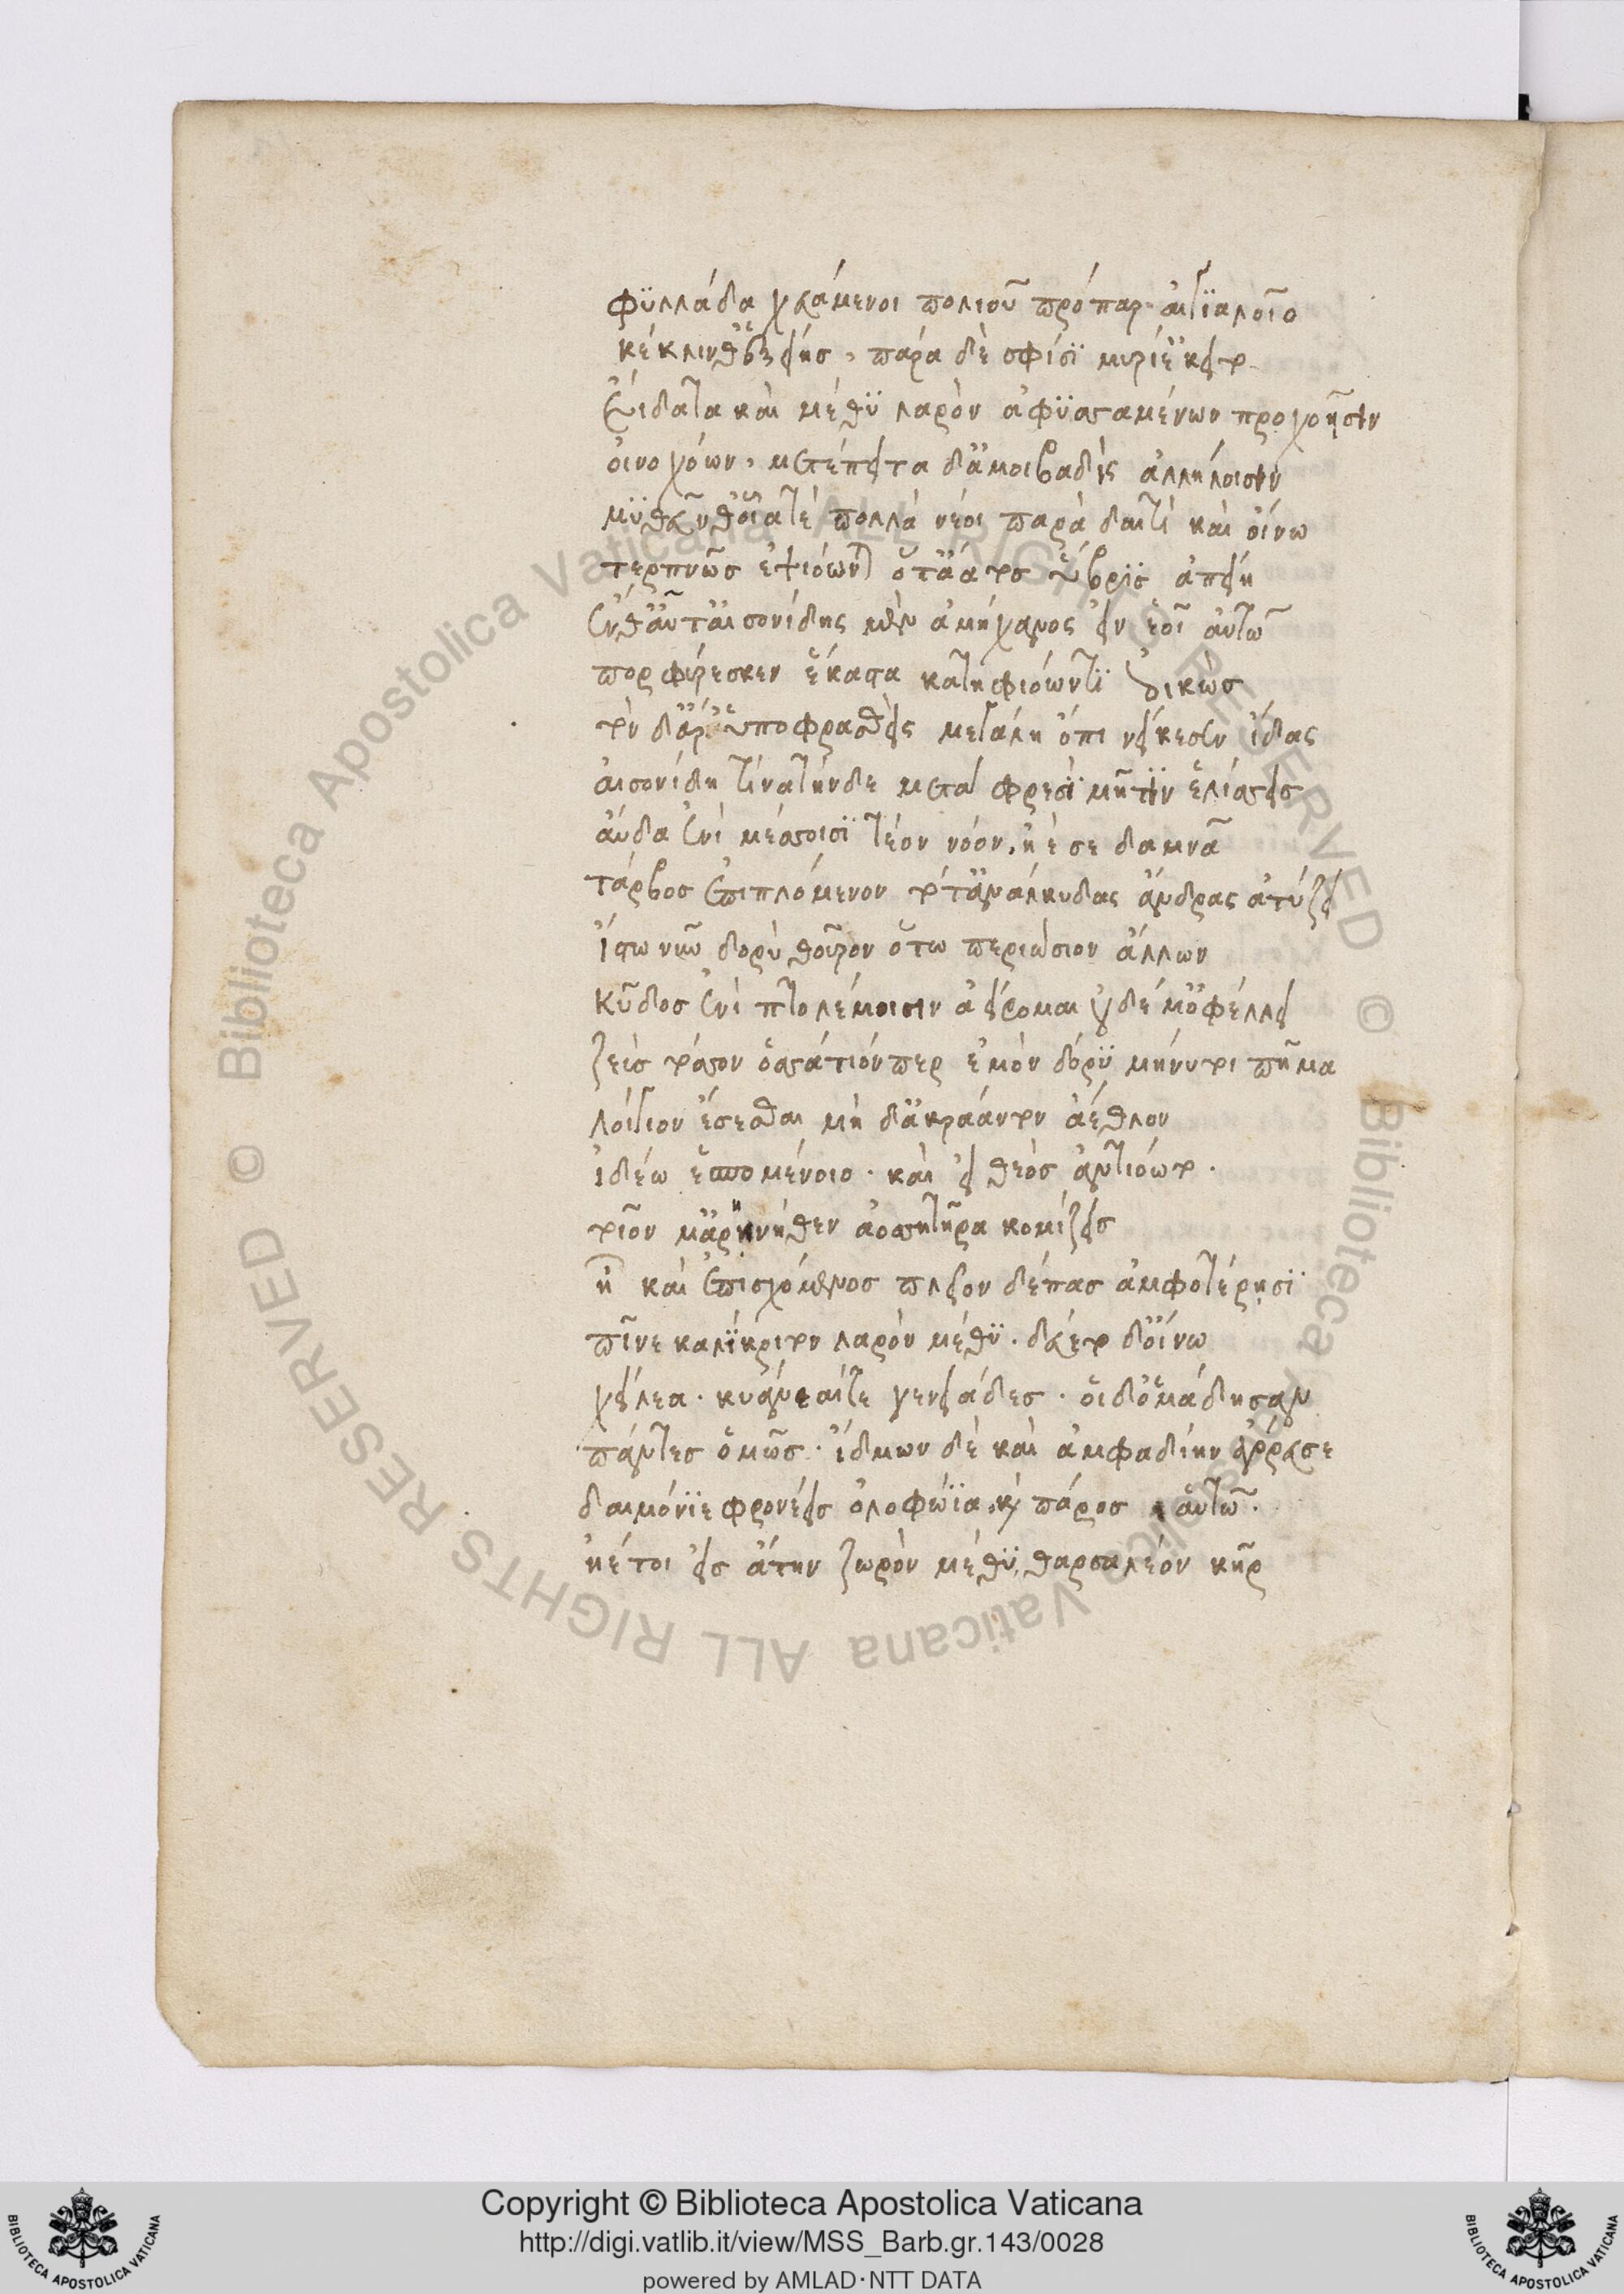 φϋλλάδα χευάμενοι πολιοῦ πρόπαρ αἰγϊαλοῖο
κέκλινθ' ἑξείης, παρὰ δὲ σφίσϊ μυρί' ἔκειτο
εἴδατα καὶ μέθϋ λαρὸν ἀφϋσσαμένων προχοῆσιν
οἰνοχόων, μετέπειτα δ' ἀμοιβαδὶς ἀλλήλοισιν
μϋθεῦνθ' οἷά τε πολλὰ νέοι παρὰ δαιτὶ καὶ οἴνω
τερπνῶς ἑψιόωνται ὅτ' ἄατος ὕβρις ἀπείη
ἔνθ' αὖτ' αἰσονίδης μὲν ἀμήχανος εἰν ἑοῖ αὐτῶ
πορφύρεσκεν ἕκαστα κατηφιόωντϊ ἐοικὼς
τὸν δ' ἄρ' ὑποφρασθεὶς μεγάλη ὀπὶ νείκεσεν ἴδας
αἰσονίδη τίνα τήνδε μετὰ φρεσὶ μῆτιν ἑλίσσεις
αὔδα ἐνὶ μέσσοισϊ τεὸν νόον, ἠέ σε δαμνᾶ
τάρβος ἐπιπλόμενον τό τ' ἀνάλκυδας ἄνδρας ἀτύζει
ἴστω νῦν δορὺ θοῦρον ὅτω περιώσιον ἄλλων
κῦδος ἐνὶ πτολέμοισιν ἀείρομαι οὐδέ μ' ὀφέλλει
ζεὺς τόσον ὁσσάτιόν περ ἐμὸν δόρϋ μήνυτοι πῆμα
λοίγιον ἔσεσθαι μὴ δ' ἀκράαντον ἄεθλον
ἰδέω ἑσπομένοιο. καὶ εἰ θεὸς ἀντιόωτο.
τοῖον μ' ἀρήνηθεν ἀοσσητῆρα κομίζεις
ἦ καὶ ἐπισχόμενος πλεῖον δέπας ἀμφοτέρησϊ
πῖνε χαλίκρητον λαρὸν μέθϋ. δεύετο δ' οἴνω
χείλεα. κυάνεαί τε γενειάδες. οἱ δ' ὁμάδησαν
πάντες ὁμῶς. ἴδμων δὲ καὶ ἀμφαδίην ἀγόρευσε
δαιμόνϊε φρονέεις ὀλοφώϊα, καὶ πάρος αὐτῶ.
ἠέ τοι εἰς ἄτην ζωρὸν μέθϋ, θαρσαλέον κῆρ
Copyright © Biblioteca Apostolica Vaticana
http://digi.vatlib.it/view/MSS_Barb.gr.143/0028
powered by AMLAD·NTT DATA